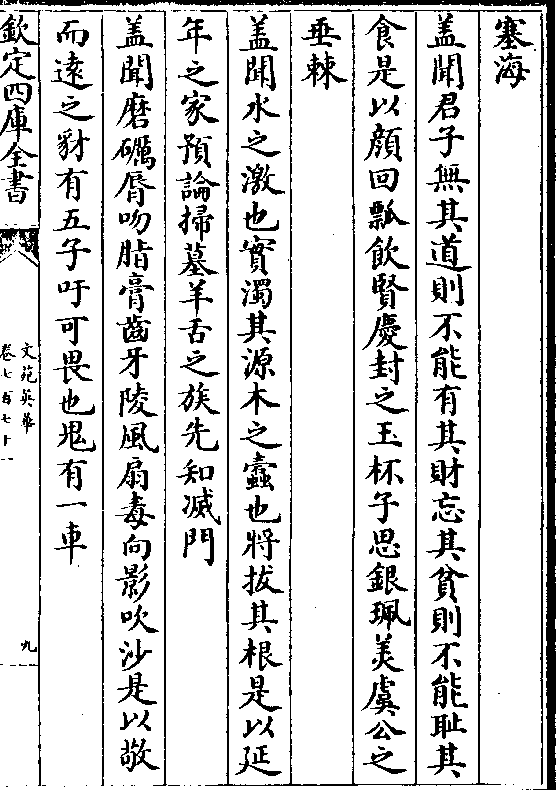 塞海
蓋聞君子無其道則不能有其財忘其貧則不能耻其
食是以顔回瓢飲賢慶封之玉杯子思銀珮美虞公之
垂棘
蓋聞水之激也實濁其源木之蠧也將拔其根是以延
年之家預論掃墓羊舌之族先知滅門
蓋聞磨礪脣吻脂膏齒牙陵風扇毒向影吹沙是以敬
而遠之豺有五子吁可畏也鬼有一車
欽定四庫全書
文苑英華
卷七百七十一
九